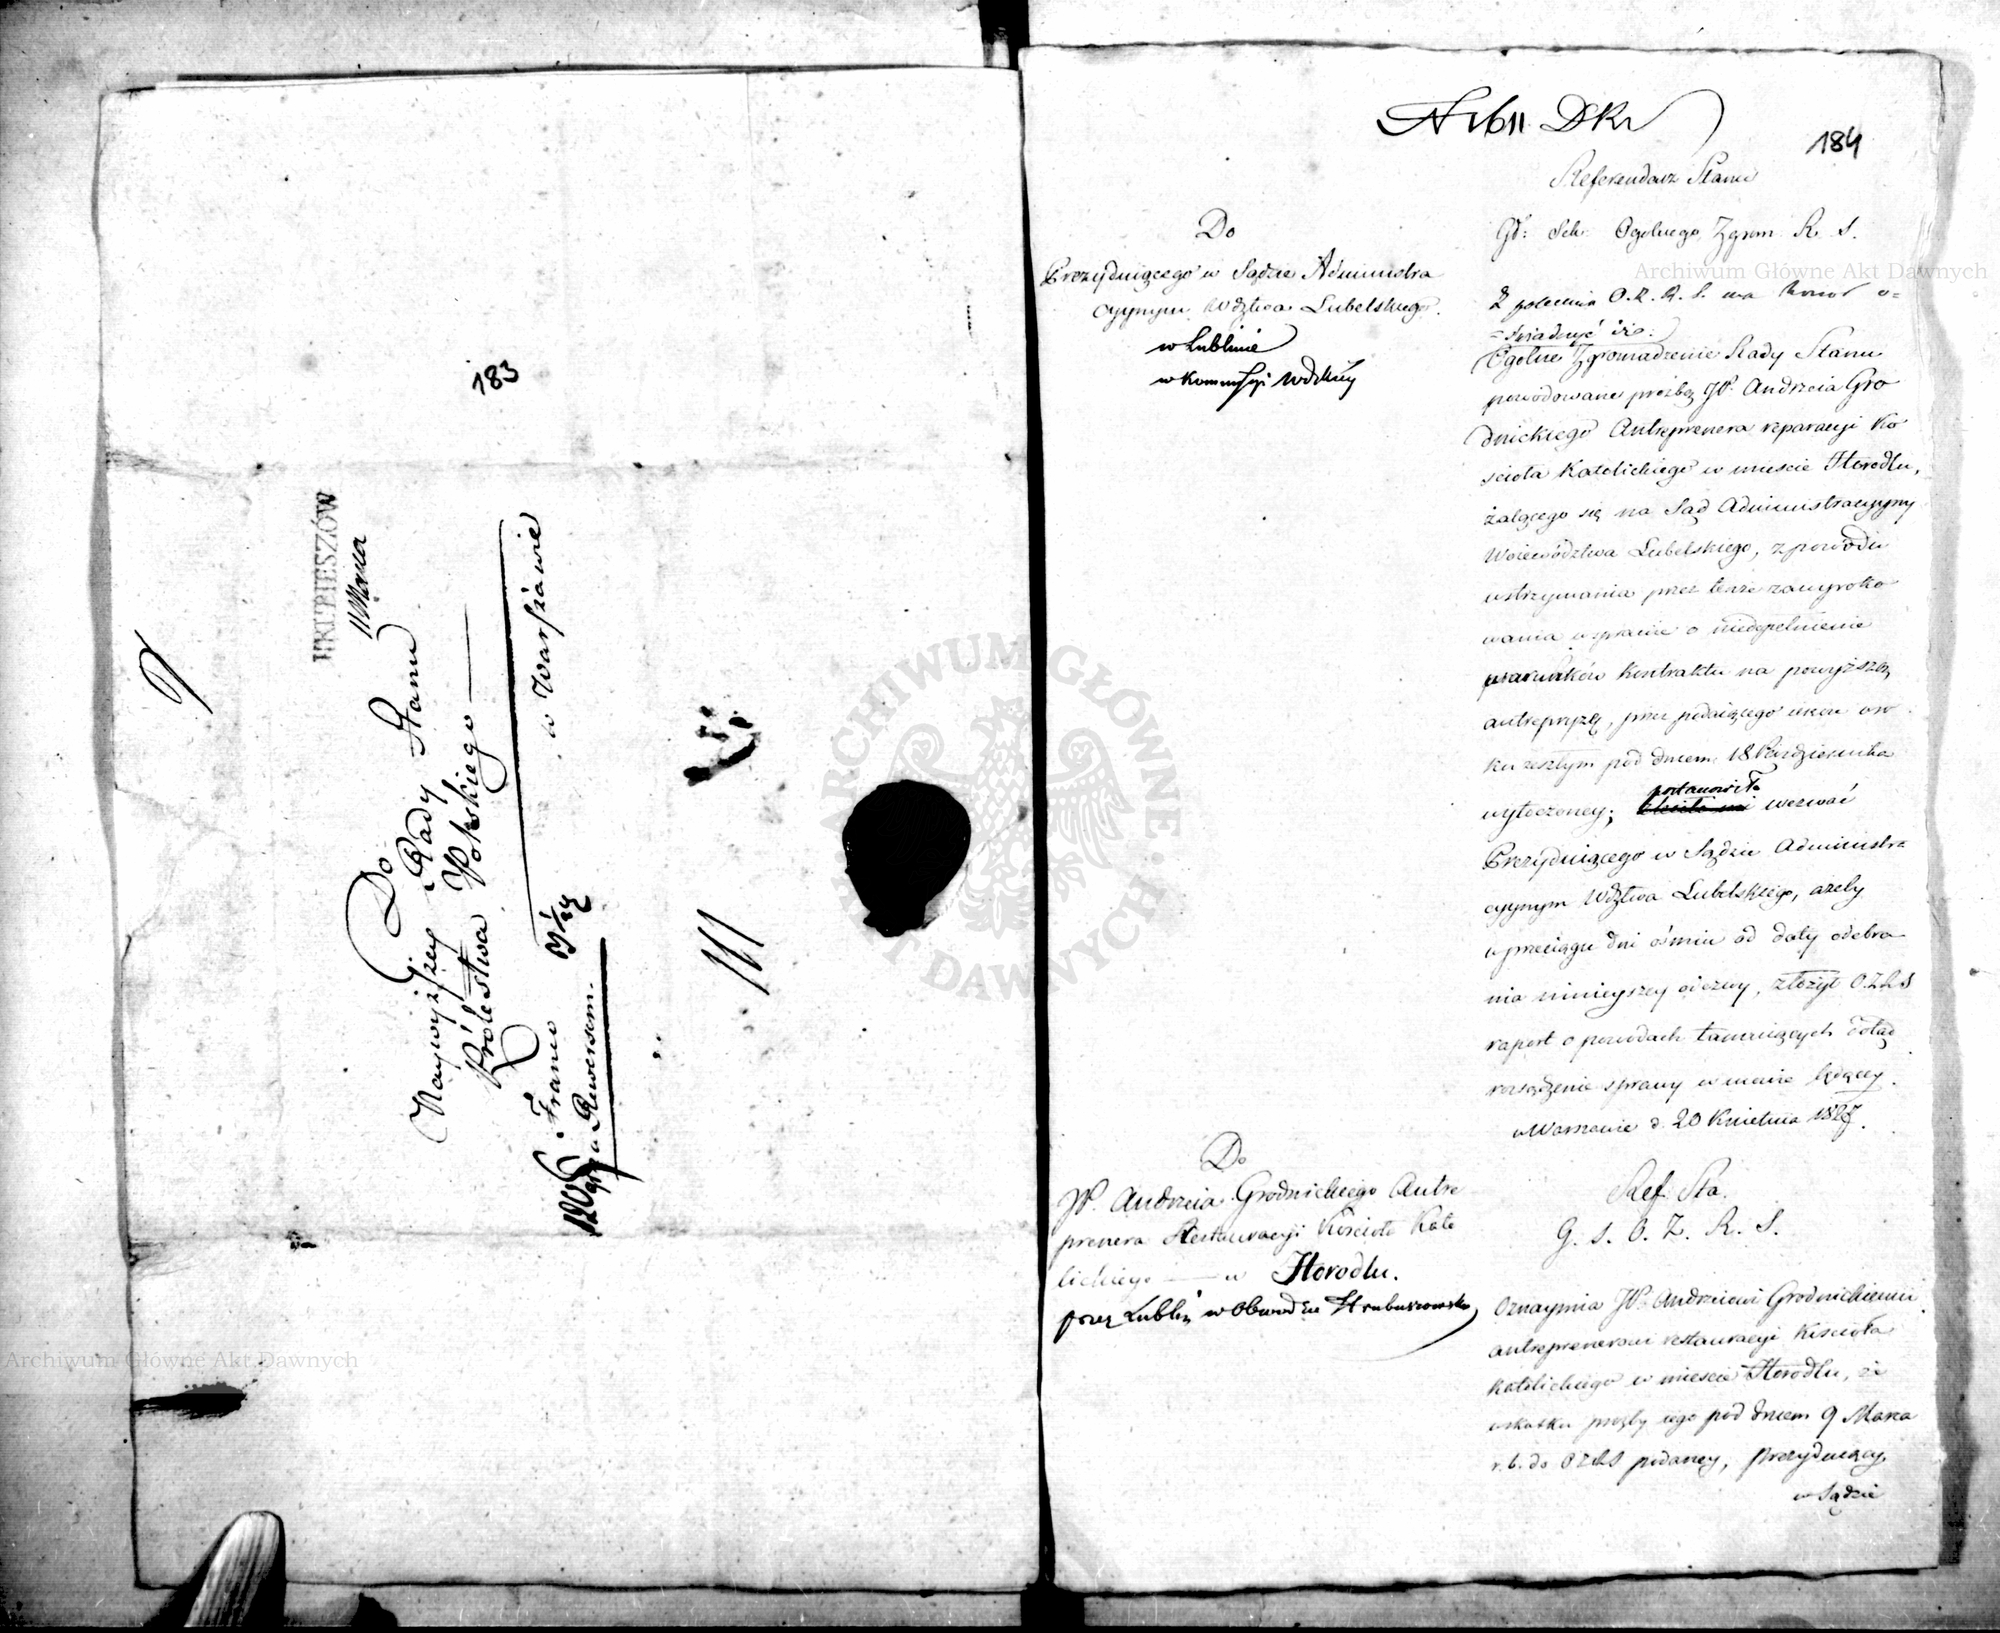 183
HRUBIESZÓW
11 Marca
Do
Naywyższey Rady Stanu
Królestwa Polskiego
w Warszawie
Franco
za Rewersem.
184
Referendarz Stanu
Gł: Sek: Ogolnego Zgrom. R. S.
Do
Prezyduiącego w Sądzie Administra
cyynym Wdztwa Lubelskiego.
w Lublinie
w Kommissyi Wdzkiey
Z polecenia O. Z. R. S. ma honor o=
=świadczyć iż:
Ogolne Zgromadzenie Rady Stanu
powodowane prozbą JP. Andrzeia Gro
dnickiego Antreprenera reparacyi Ko
scioła Katolickiego w mieście Horodłu,
żalącego się na Sąd Administracyyny
Woiewództwa Lubelskiego, z powodu
wstrzymania przez tenże zawyroko
wania w sprawie o niedopełnienie
warunków kontraktu na powyższą
antrepryzę, przez podaiącego w ro
ku zeszłym pod dniem 18 Października
wytoczoney; postanowiło wezwać
Prezyduiącego w Sądzie Administra
cyynym Wdztwa Lubelskiego, ażeby
w przeciągu dni ośmiu od daty odebra
nia ninieyszey odezwy, złożył O.Z.R.S
raport o powodach tamuiących dotąd
rozsądzenie sprawy w mowie będącey.
w Warszawie d. 20 Kwietnia 1827.
Do
JP. Andrzeia Grodnickiego Antre
prenera Restauracyi Kościoła Kato
lickiego — w Horodłu.
przez Lublin w Obwodzie Hrubieszowskim
Ref. Sta.
G. S. O. Z. R. S.
Oznaymia JP. Andrzeiowi Grodnickiemu
antreprenerowi restauracyi Kościoła
Katolickiego w mieście Horodłu, że
w skutku prozby iego pod dniem 9 Marca
r. b. do OZRS podaney, Prezyduiący
w Sądzie
Archiwum Główne Akt Dawnych
Archiwum Główne Akt Dawnych
ARCHIWUM GŁÓWNE AKT DAWNYCH